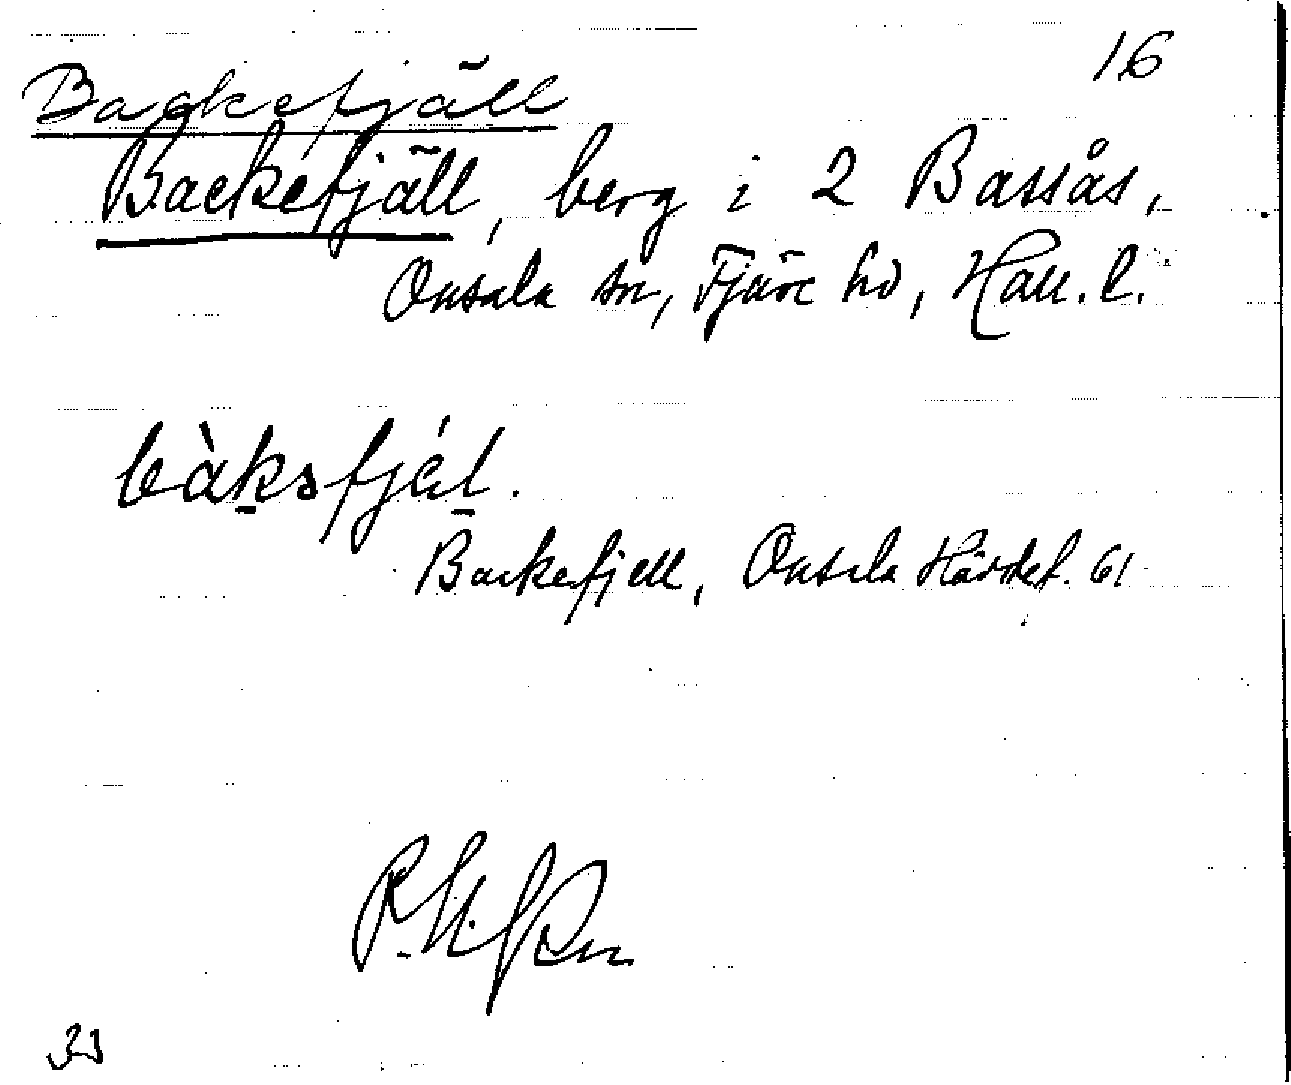 16
Backefjäll
Backefjäll, berg i 2 Bassås,
Onsala sn, Fjäre hd, Hall. l.
bàksfjäl.
Backefjell, Onsala Härdef. 61
33